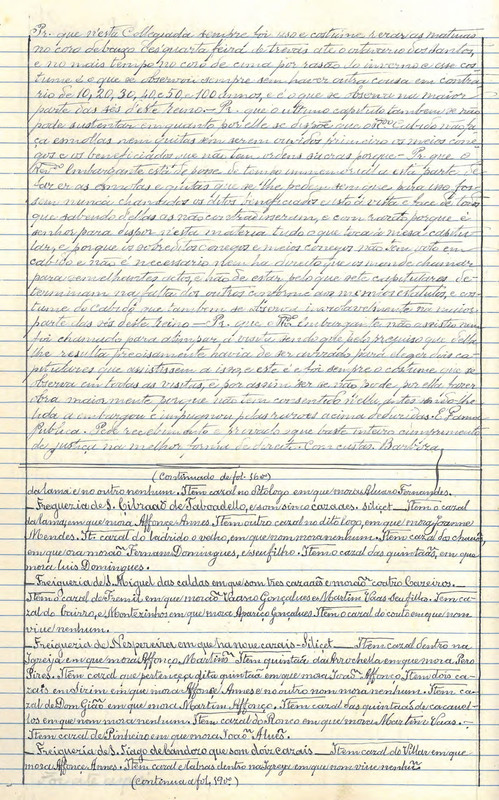 Pr. que n'esta Collegiada sempre foi uso e costume rezar as matinas
no coro de baixo desquarta feira de trevas até outavario dos Santos,
e no mais tempo no coro de cima por rasão do inverno e esse cos-
tume é o que se observou sempre sem haver outra cousa em contra
rio de 10, 20, 30, 40 e 50 e 100 annos, e é o que se observa na maior
parte das sés d'este reino — Pr. que o ultimo capitulo tambem se não
pode sustentar emquanto por elle se dispoe que o Rdo Cabido não fa
ça esmollas nem quitas sem serem ouvidos primeiro os meios cone
gos e os beneficiados que não tem ordens sacras porque — Pr. que o
Rdo Embargante está de posse de tempo immemorial a esta parte de
fazer as esmolas e quitas que se lhe pedem sem que para isso fos
sem nunca chamados os ditos beneficiados e isto á vista e face de todos
que sabendo dellas as não contradisseram, e com razão porque é
senhor para dispor n'esta materia tudo o que toca á mesa capitu
lar, e porque os outros ditos conegos e meios conegos não tem voto em
cabido e não é necessario nem ha direito que os mande chamar
para semelhantes actos, e hão de estar pelo que sete capitulares de-
terminam na falta dos outros conforme aos mesmos estatutos, e cos-
tume do Cabido que tambem se observa inviolavelmente na maior
parte das sés deste reino — Pr. que o Rdo Embargante não assistiu nem
foi chamado para
lhe resulta precisamente havia de ser ouvido para eleger dois ca-
pitulares que assistissem a isso, e este é e foi sempre o costume que se
observa em todas as visitas, e por assim ser se não pode por elle fazer
obra maiormente porque não tem consentido n'elle antes sendo-lhe
lida a embargou e impugnou pelas razões acima deduzidas. E Fama
Publica. Pede recebimento e provado que baste inteiro cumprimento
de justiça na melhor forma de direito. Com custas. Barbosa
(Continuado de fol. 16 vº)
da lama e no outro nenhum. Item cazal no Potologo em que mora Alvaro Fernandes.
— Freguezia de S. Cibraaõ de Taboadello, e som sinco cazaes. silicet — Item o cazal
da lama, em que mora Affonço Annes. Item outro cazal no dito logo, em que mora Joanne
Mendes. It. cazal do ladrido o velho, em que nom mora nenhum. Item cazal da chauzã,
em que ora moraõ Fernam Domingues, e seu filho. Item o cazal das quintaãs, em que
mora Luis Domingues.
— Freiguezia de S. Miguel das caldas em que som tres cazaes e moraõ contro Careiros.
Item o cazal de Franil em que moraõ Vaasco Gonçalves e Martim Viras seu filho. Item ca-
zal do bairro, e Monterinhos em que mora Aparico Gonçalves. Item o cazal do couto em que nom
vive nenhum.
— Freiguezia de Nespereira em que ha nove cazais — Silicet — Item cazal dentro na
Igreja em que mora Affonço Martins. Item quintaã da Arrochela em que mora Pero
Pires. Item cazal que pertence a dita quintaã em que mora Joaõ Affonço. Item dois ca-
zais em Sirim em que mora Affonço Annes e no outro nom mora nenhum. Item ca-
zal de Dom Gião em que mora Martim Affonço. Item cazal das quintaãs de cacavel-
los em que nom mora nenhum. Item cazal do Ronco em que mora Martim Vaas. —
Item cazal de Pinheiro em que mora Joaõ Alvis.
— Freiguezia de S. Tiago de Candozo que som dois cazais — Item cazal do Villar em que
mora Affonço Annes. Item cazal e labras dentro na Igreja em que nom vive nenhũ
(Continua a fol. 19 vº)